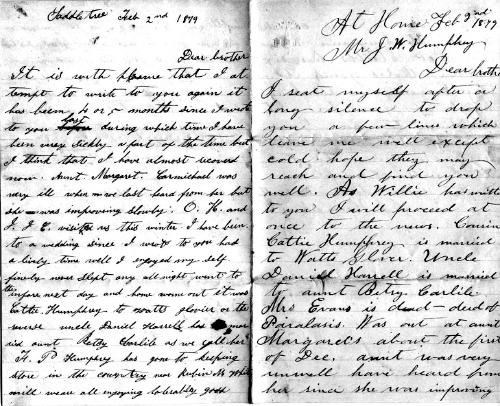 Saddletree Feb 2nd 1879
Dear brother
It is with pleasure that I at
tempt to write to you again it
has been 4 or 5 month since I wrote
to you last during which time I have
been very sickly a part of the time but
I think that I have almost recovd
now. Aunt Margaret. Carmichael was
very ill when we last heard from her but
she was improving slowly. O. H. and
visited us this winter I have been
to a wedding since I wrote to you had
a lively time well I enjoyed my self
finely never slept any all night went to
the infare next day and home worn out it was
Cattie Humphrey to Watts Glover or the
uncle Daniel Harrell has
ried aunt Betsy Carlile as we call her
A. P Humphrey has gone to keeping
store in the country near Rubin
will wease all enjoying tolerably good
At Home Feb 2nd 1879
Mr J. W. Humphrey
Dear brother
I seat myself after a
long silence to drop
you a few lines which
leave me well except
cold hope they may
reach and find you
well. As Willie has writ
to you I will proceed at
once to the news. Cousin
Cattie Humphrey is married
to Watts Glover. Uncle
Daniel Harrell is married
to aunt Betsy Carlile
Mrs Evans is dead - died of
Paralasis. Was out at aunt
Margarets about the first
of Dec, aunt was very
unwell have heard from
her since she was improving